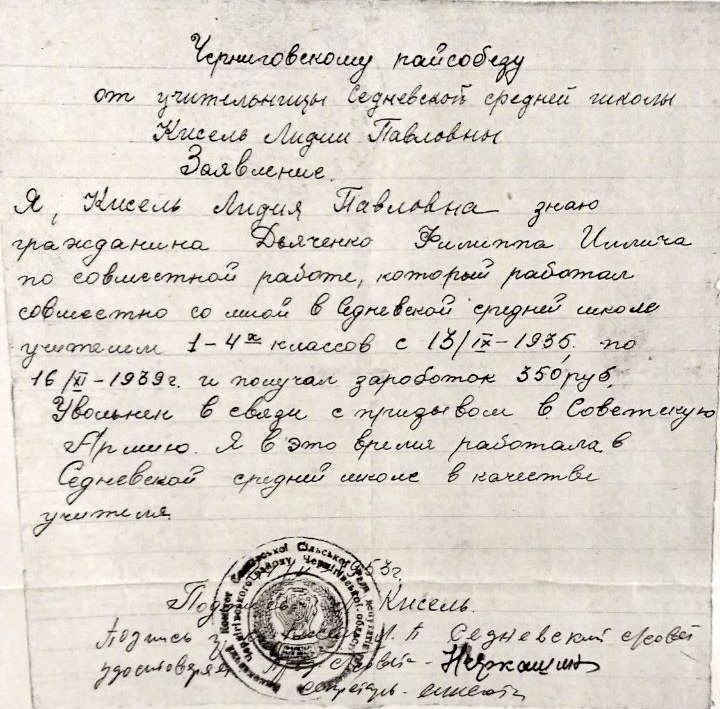 Черниговскому райсобезу
от учительницы Седневской средней школы
Кисель Лидии Павловны
Заявление.
Я, Кисель Лидия Павловна знаю
гражданина Дьяченко Филиппа Иллича
по совместной работе, который работал
совместно со мной в Седневской средней школе
учителем 1-4х классов с 13/IX-1935. по
16/XI-1939г. и получал зароботок 350 руб.
Увольнен в связи с призывом в Советскую
Армию. Я в это время работала в
Седневской средней школе в качестве
учителя.
Кисель.
Подпись Л. П. Седневский
удостоверя
секретарь